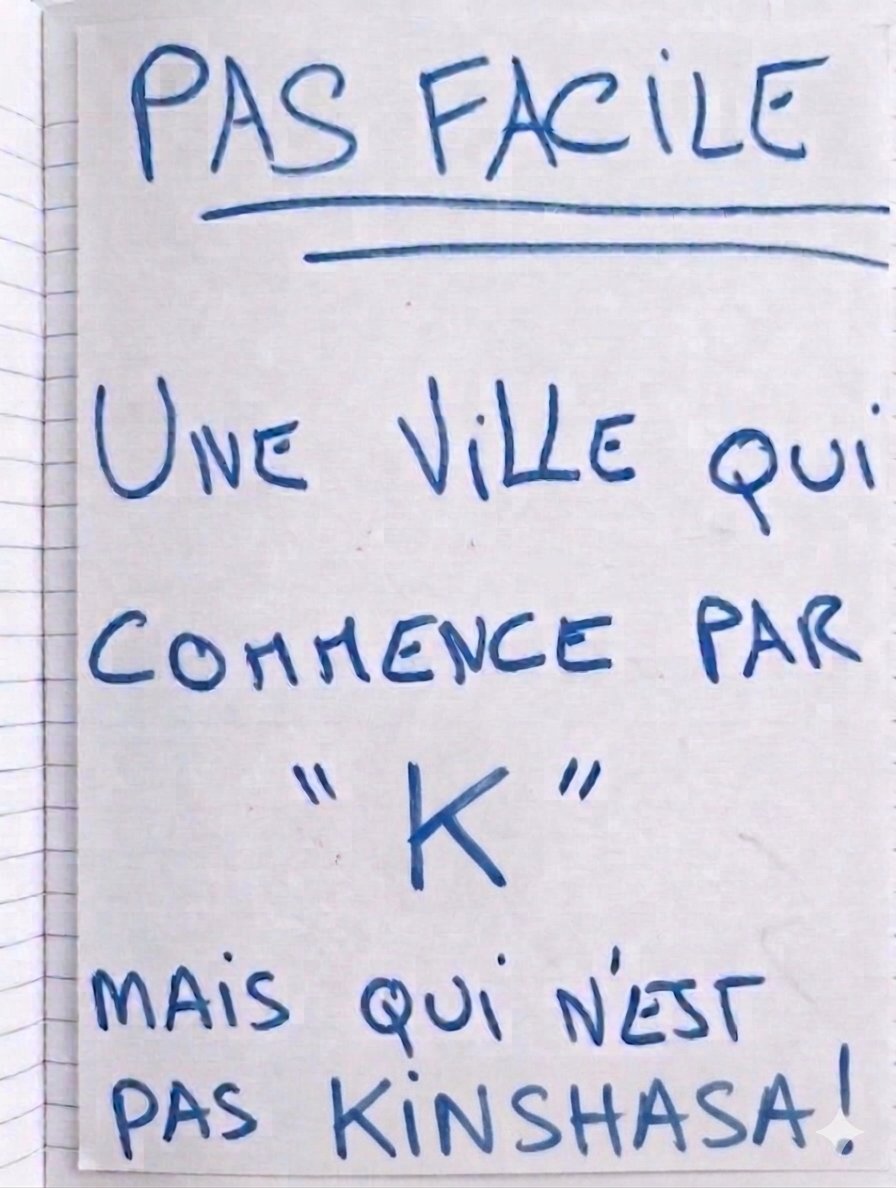 PAS FACILE
UNE VILLE QUI
COMMENCE PAR
"K"
MAIS QUI N'EST
PAS KINSHASA!